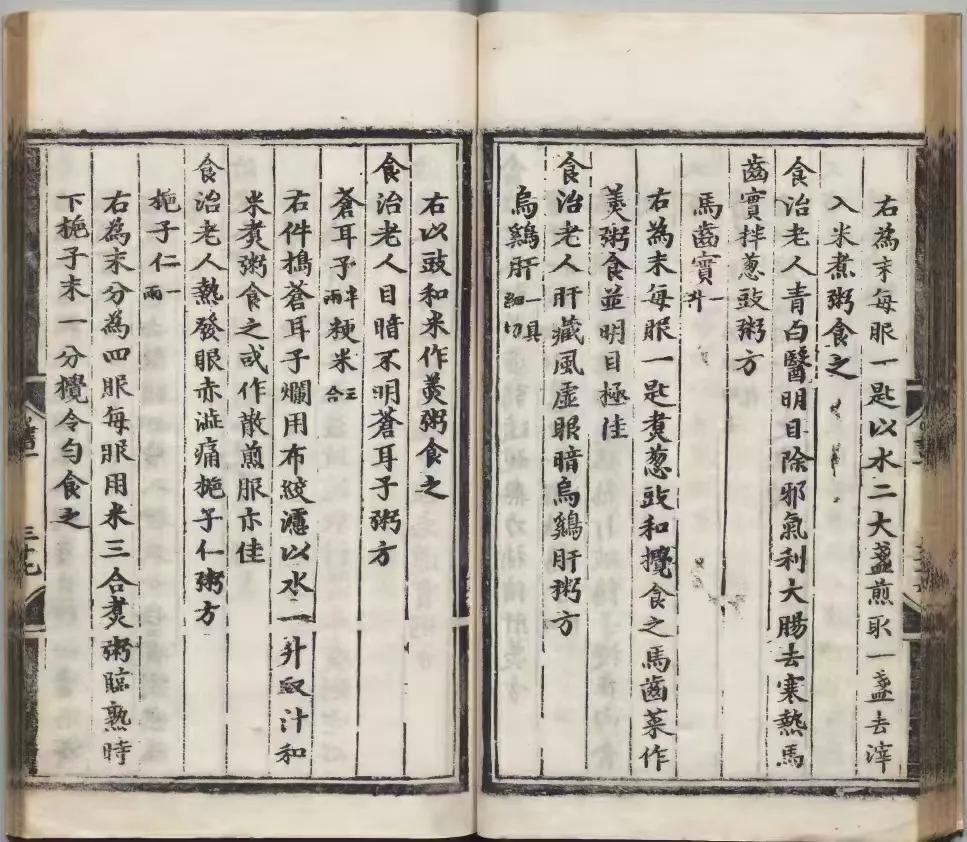 右為末每服一匙以水二大盞煎取一盞去滓
入米煮粥食之
食治老人青白醫明目除邪氣利大腸去寒熱馬
齒實拌葱豉粥方
馬齒實一升
右為末每服一匙煑葱豉和攪食之馬齒菜作
羮粥食並明目極佳
食治老人肝藏風虛眼暗烏鷄肝粥方
烏鷄肝一具細切
右以豉和米作羮粥食之
食治老人目暗不明蒼耳子粥方
蒼耳子半兩粳米三合
右件搗蒼耳子爛用布絞濾以水二升取汁和
米煑粥食之或作散煎服亦佳
食治老人熱發眼赤澁痛梔子仁粥方
梔子仁一兩
右為末分為四服每服用米三合煑粥臨熟時
下梔子末一分攪令勻食之